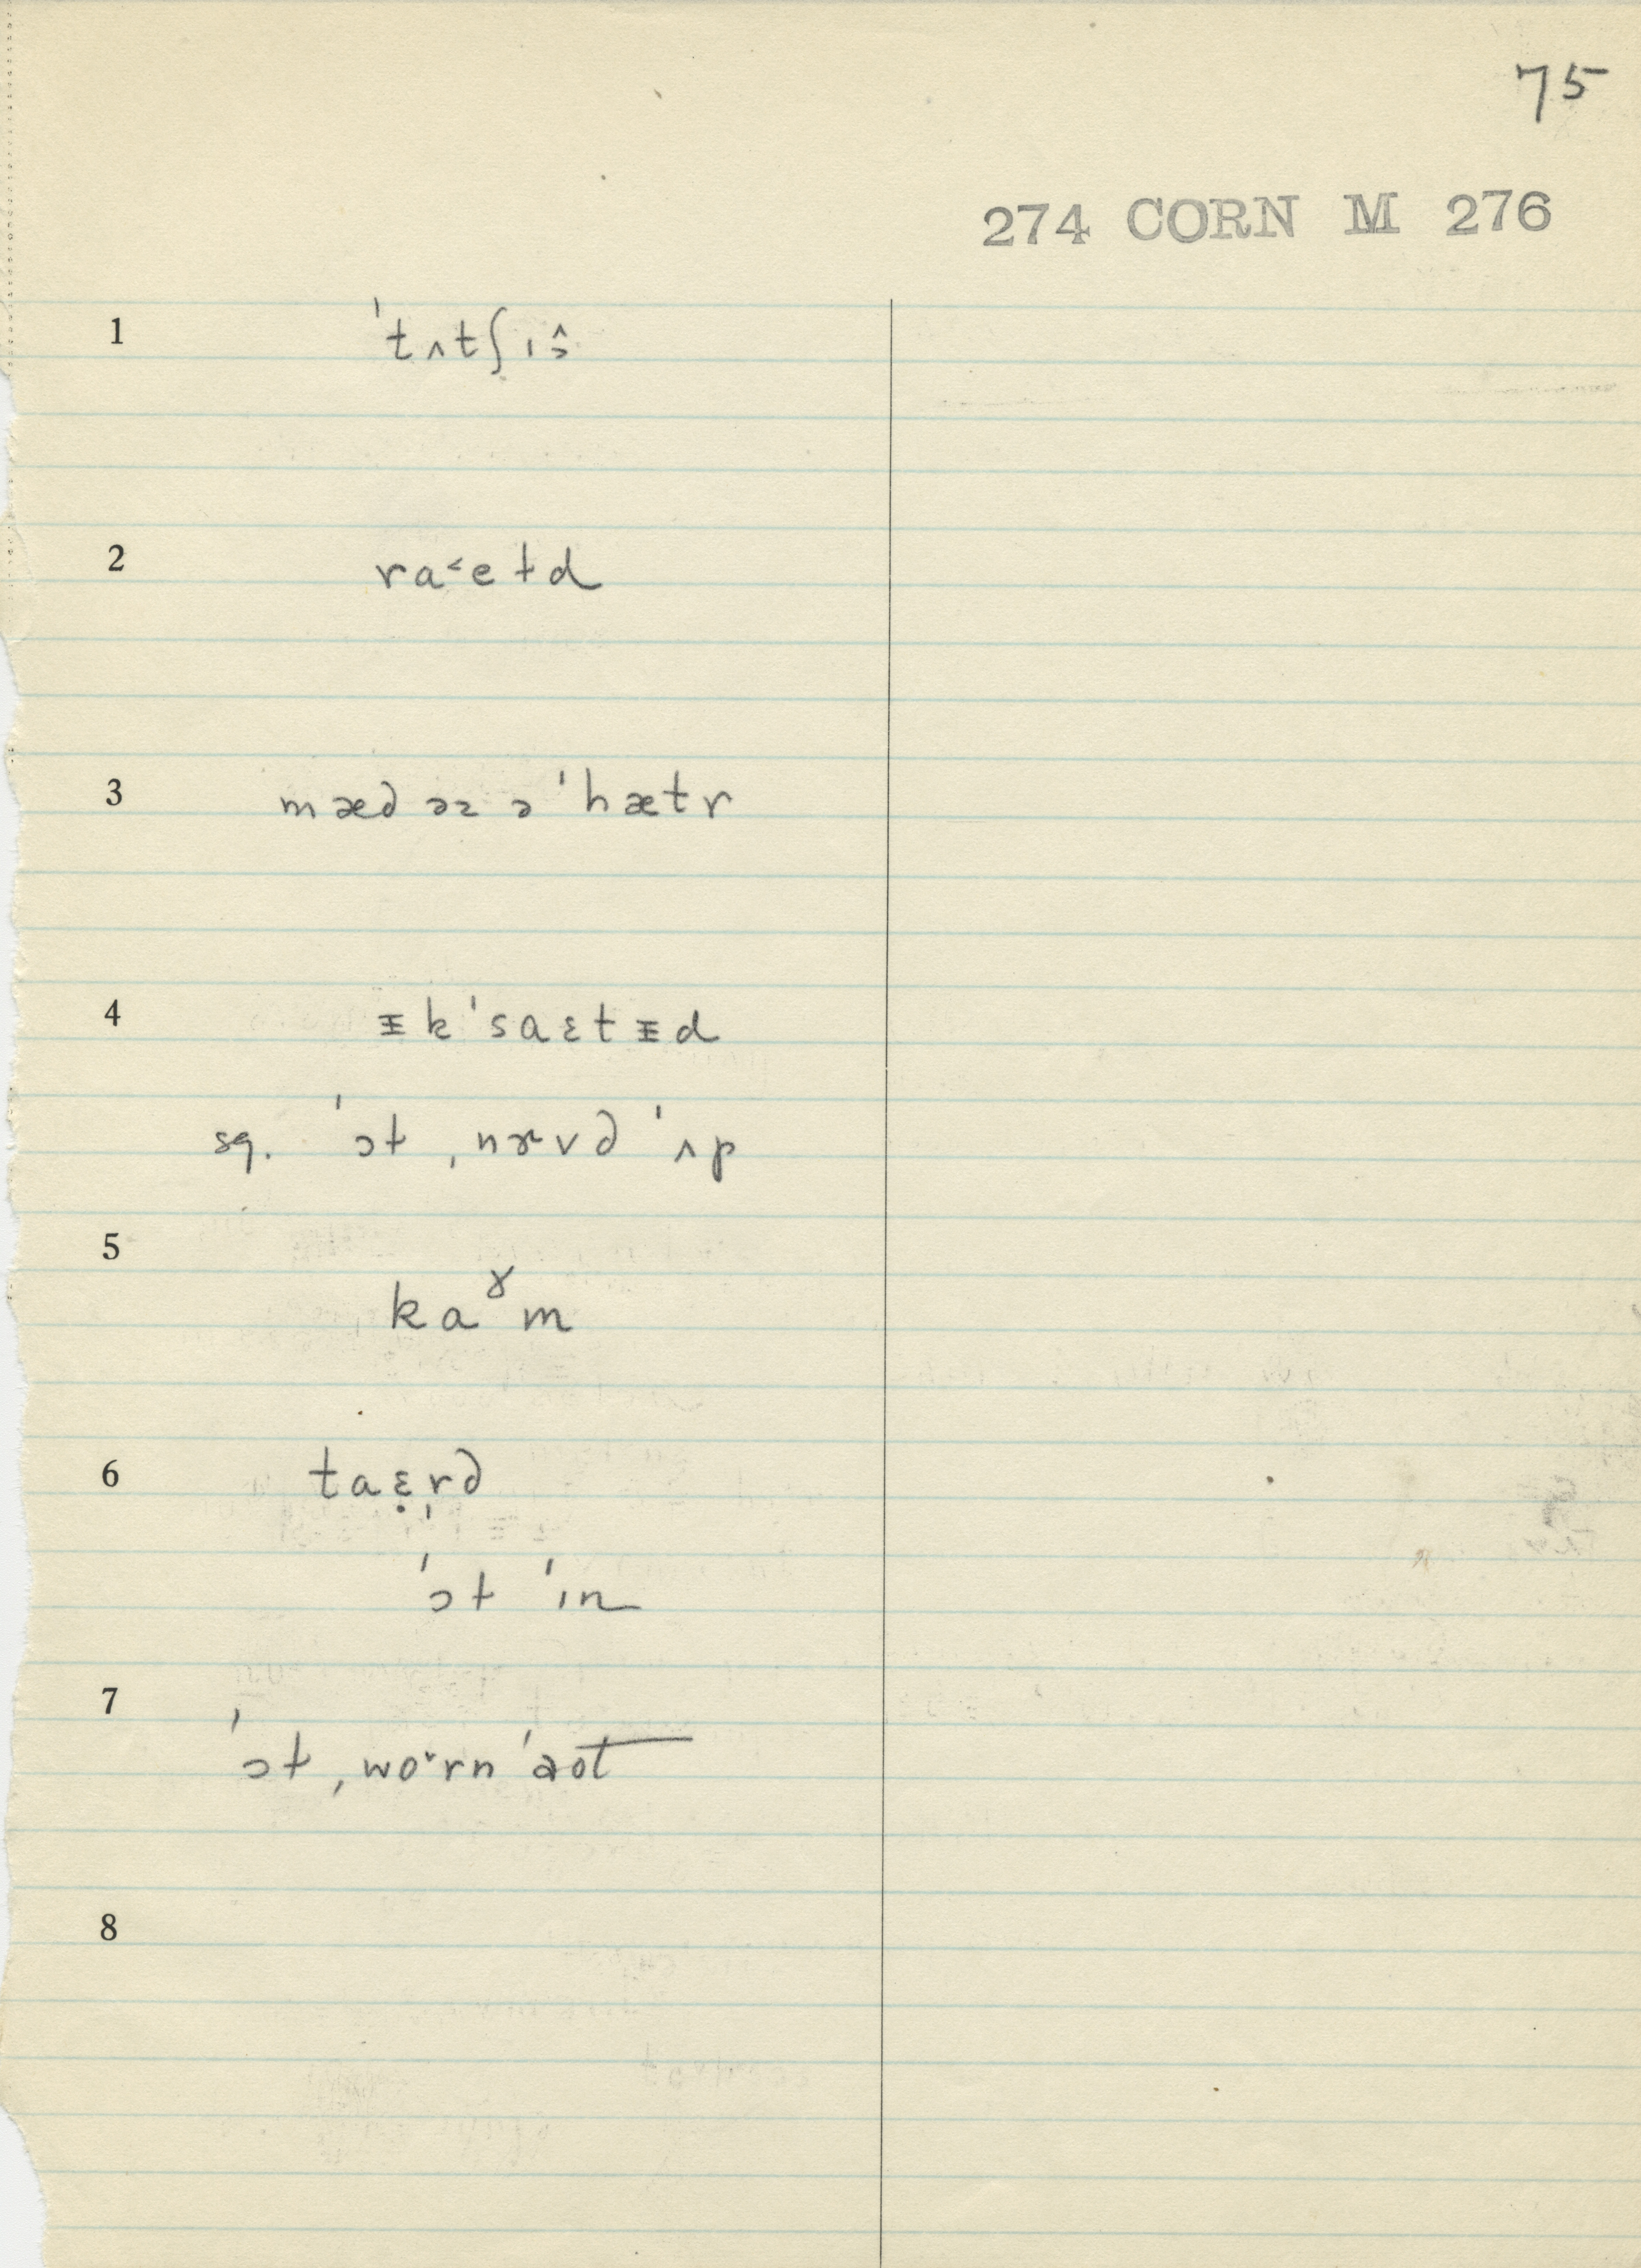 75
274 CORN M 276
1 ˈtʌtʃɪɔ̂
2 ra˂eɫd
3 mæd əz ə ˈhætr
4 ᵻkˈsaɛtᵻd
sq. ˈɔɫ ˌnɝvd ˈʌp
5 kaˠm
6 taɛ̣r̩d
ˈɔɫ ˈɪn
7 ˈɔɫ ˌwo˞rn ˈaot
8